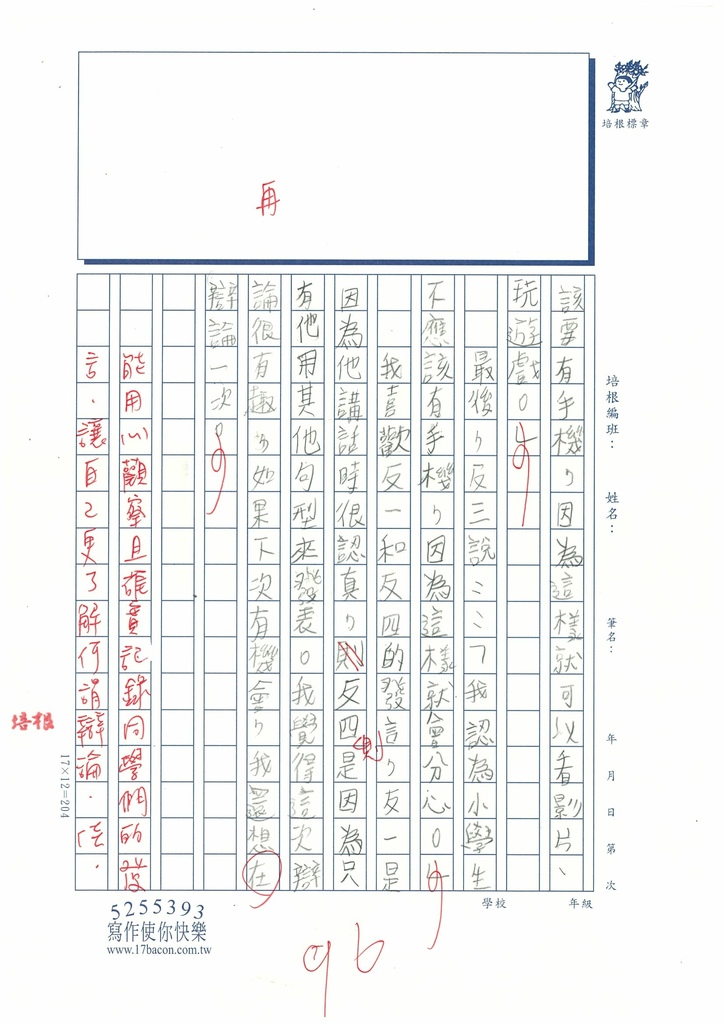 再
培根標章
培根編班：
姓名：
筆名：
年 月 日 第 次
該要有手機，因為這樣就可以看影片、
玩遊戲。」
最後，反三說：「我認為小學生
不應該有手機，因為這樣就會分心。」
我喜歡反一和反四的發言，反一是
因為他講話時很認真，則反四是因為只
則
有他用其他句型來發表。我覺得這次辯
論很有趣，如果下次有機會，我還想在
辯論一次。
能用心觀察且確實記錄同學們的發
言，讓自己更了解何謂辯論，佳。
培根
17×12=204
學校
年級
5255393
寫作使你快樂
www.17bacon.com.tw
96